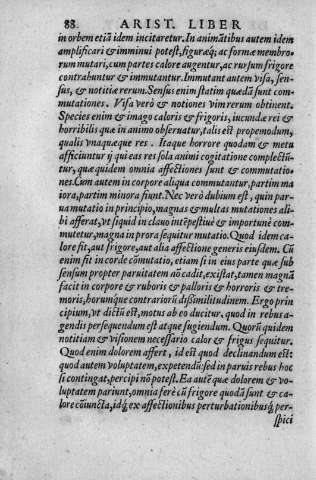 88. ARIST. LIBER
in orbem etiã idem incitaretur. In animãtibus autem idem
amplificari & imminui potest, figuræq́; ac formæ membro-
rum mutari, cum partes calore augentur, ac rursum frigore
contrahuntur & immutantur. Immutant autem visa, sen-
sus, & notitiæ rerum. Sensus enim statim quædã sunt com-
mutationes. Visa verò & notiones vim rerum obtinent.
Species enim & imago caloris & frigoris, iucundæ rei &
horribilis quæ in animo obseruatur, talis est propemodum,
qualis vnaquæque res. Itaque horrore quodam & metu
afficiuntur ij qui eas res sola animi cogitatione complectũ-
tur, quæ quidem omnia affectiones sunt & commutatio-
nes. Cum autem in corpore aliqua commutantur, partim ma
iora, partim minora fiunt. Nec verò dubium est, quin par-
ua mutatio in principio, magnas & multas mutationes ali-
bi afferat, vt si quid in clauo intẽpestiuè & importunè com-
mutetur, magna in prora sequitur mutatio. Quod idem ca-
lore fit, aut frigore, aut alia affectione generis eiusdem. Cũ
enim fit in corde cõmutatio, etiam si in eius parte quæ sub
sensum propter paruitatem nõ cadit, existat, tamen magnã
facit in corpore & ruboris & palloris & horroris & tre-
moris, horumque contrariorũ dissimilitudinem. Ergo prin
cipium, vt dictũ est, motus ab eo ducitur, quod in rebus a-
gendis persequendum est atque fugiendum. Quorũ quidem
notitiam & visionem necessario calor & frigus sequitur.
Quod enim dolorem affert, id est quod declinandum est:
quod autem voluptatem, expetendũ: sed in paruis rebus hoc
si contingat, percipi nõ potest. Ea autẽ quæ dolorem & vo-
luptatem pariunt, omnia ferè cũ frigore quodã sunt & ca-
lore cõiuncta, idq́; ex affectionibus perturbationibusq́; per-
spici